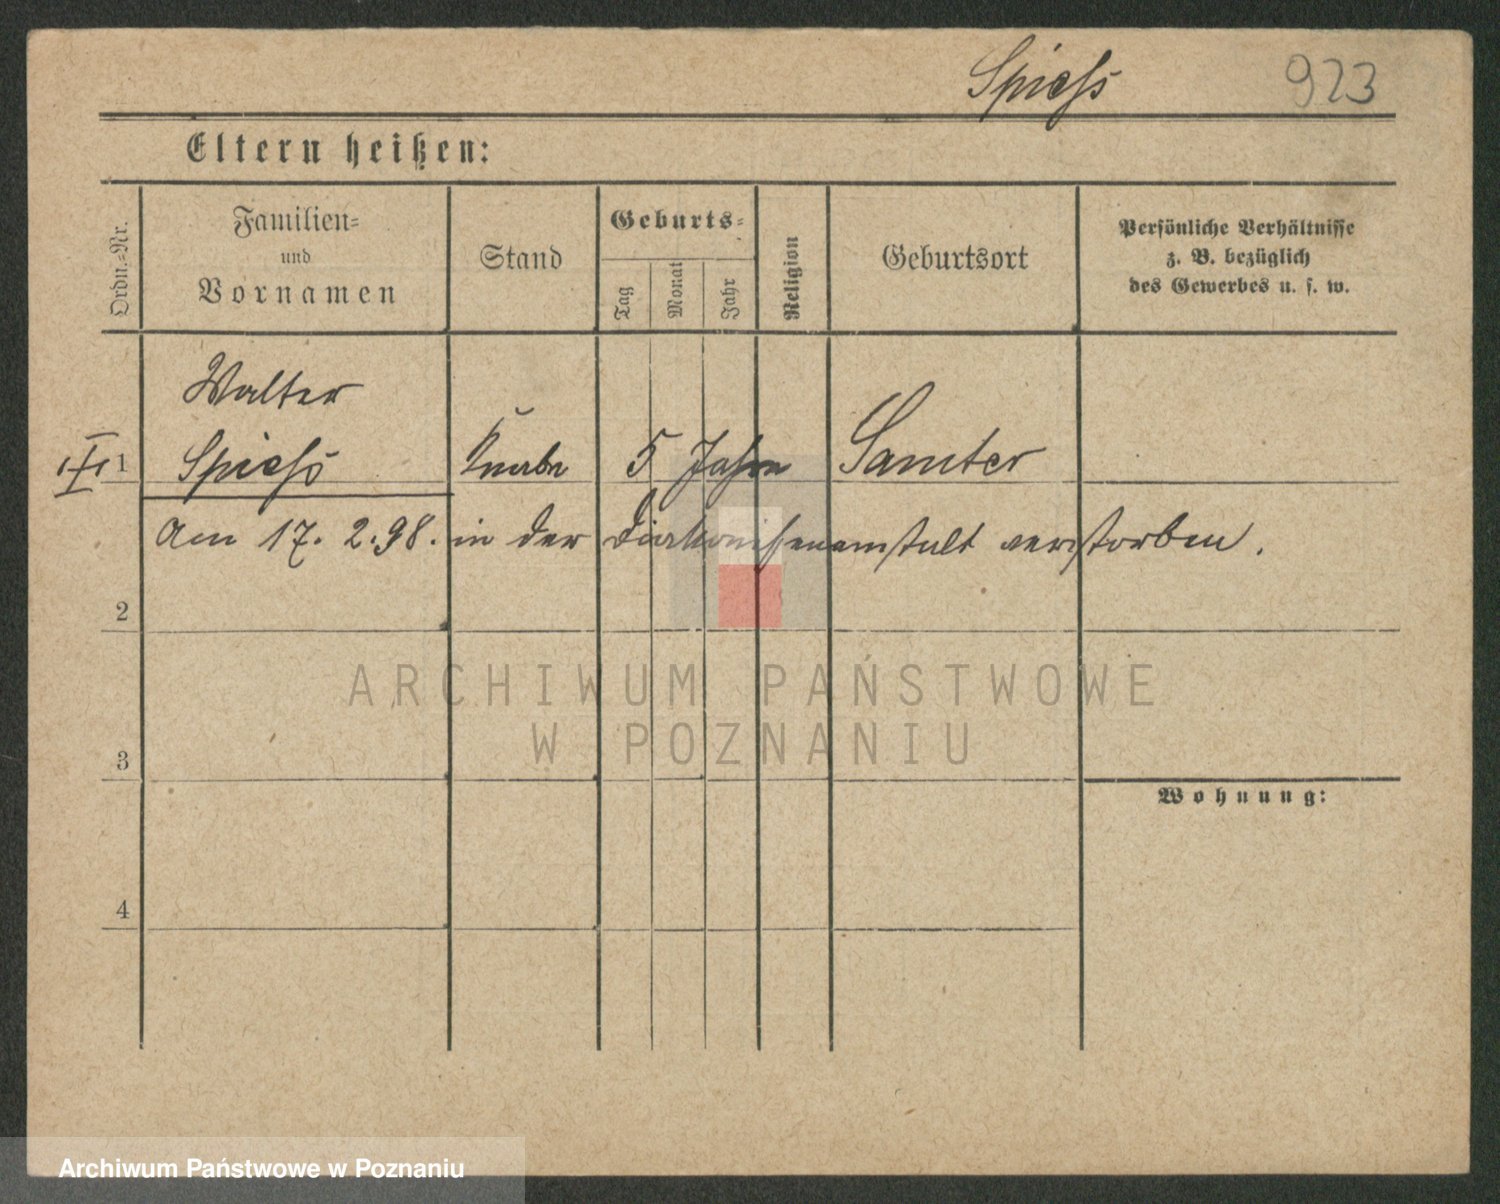 Spiess 923
Eltern heißen:
Ordn.-Nr.
Familien-
und
Vornamen
Stand
Geburts-
Tag
Monat
Jahr
Religion
Geburtsort
Persönliche Verhältnisse
z. B. bezüglich
des Gewerbes u. s. w.
Walter
1 Spiess Knabe 5 Jahre Samter
Am 17. 2. 98. in der Diakonissenanstalt verstorben.
2
ARCHIWUM PAŃSTWOWE
W POZNANIU
3
Wohnung:
4
Archiwum Państwowe w Poznaniu